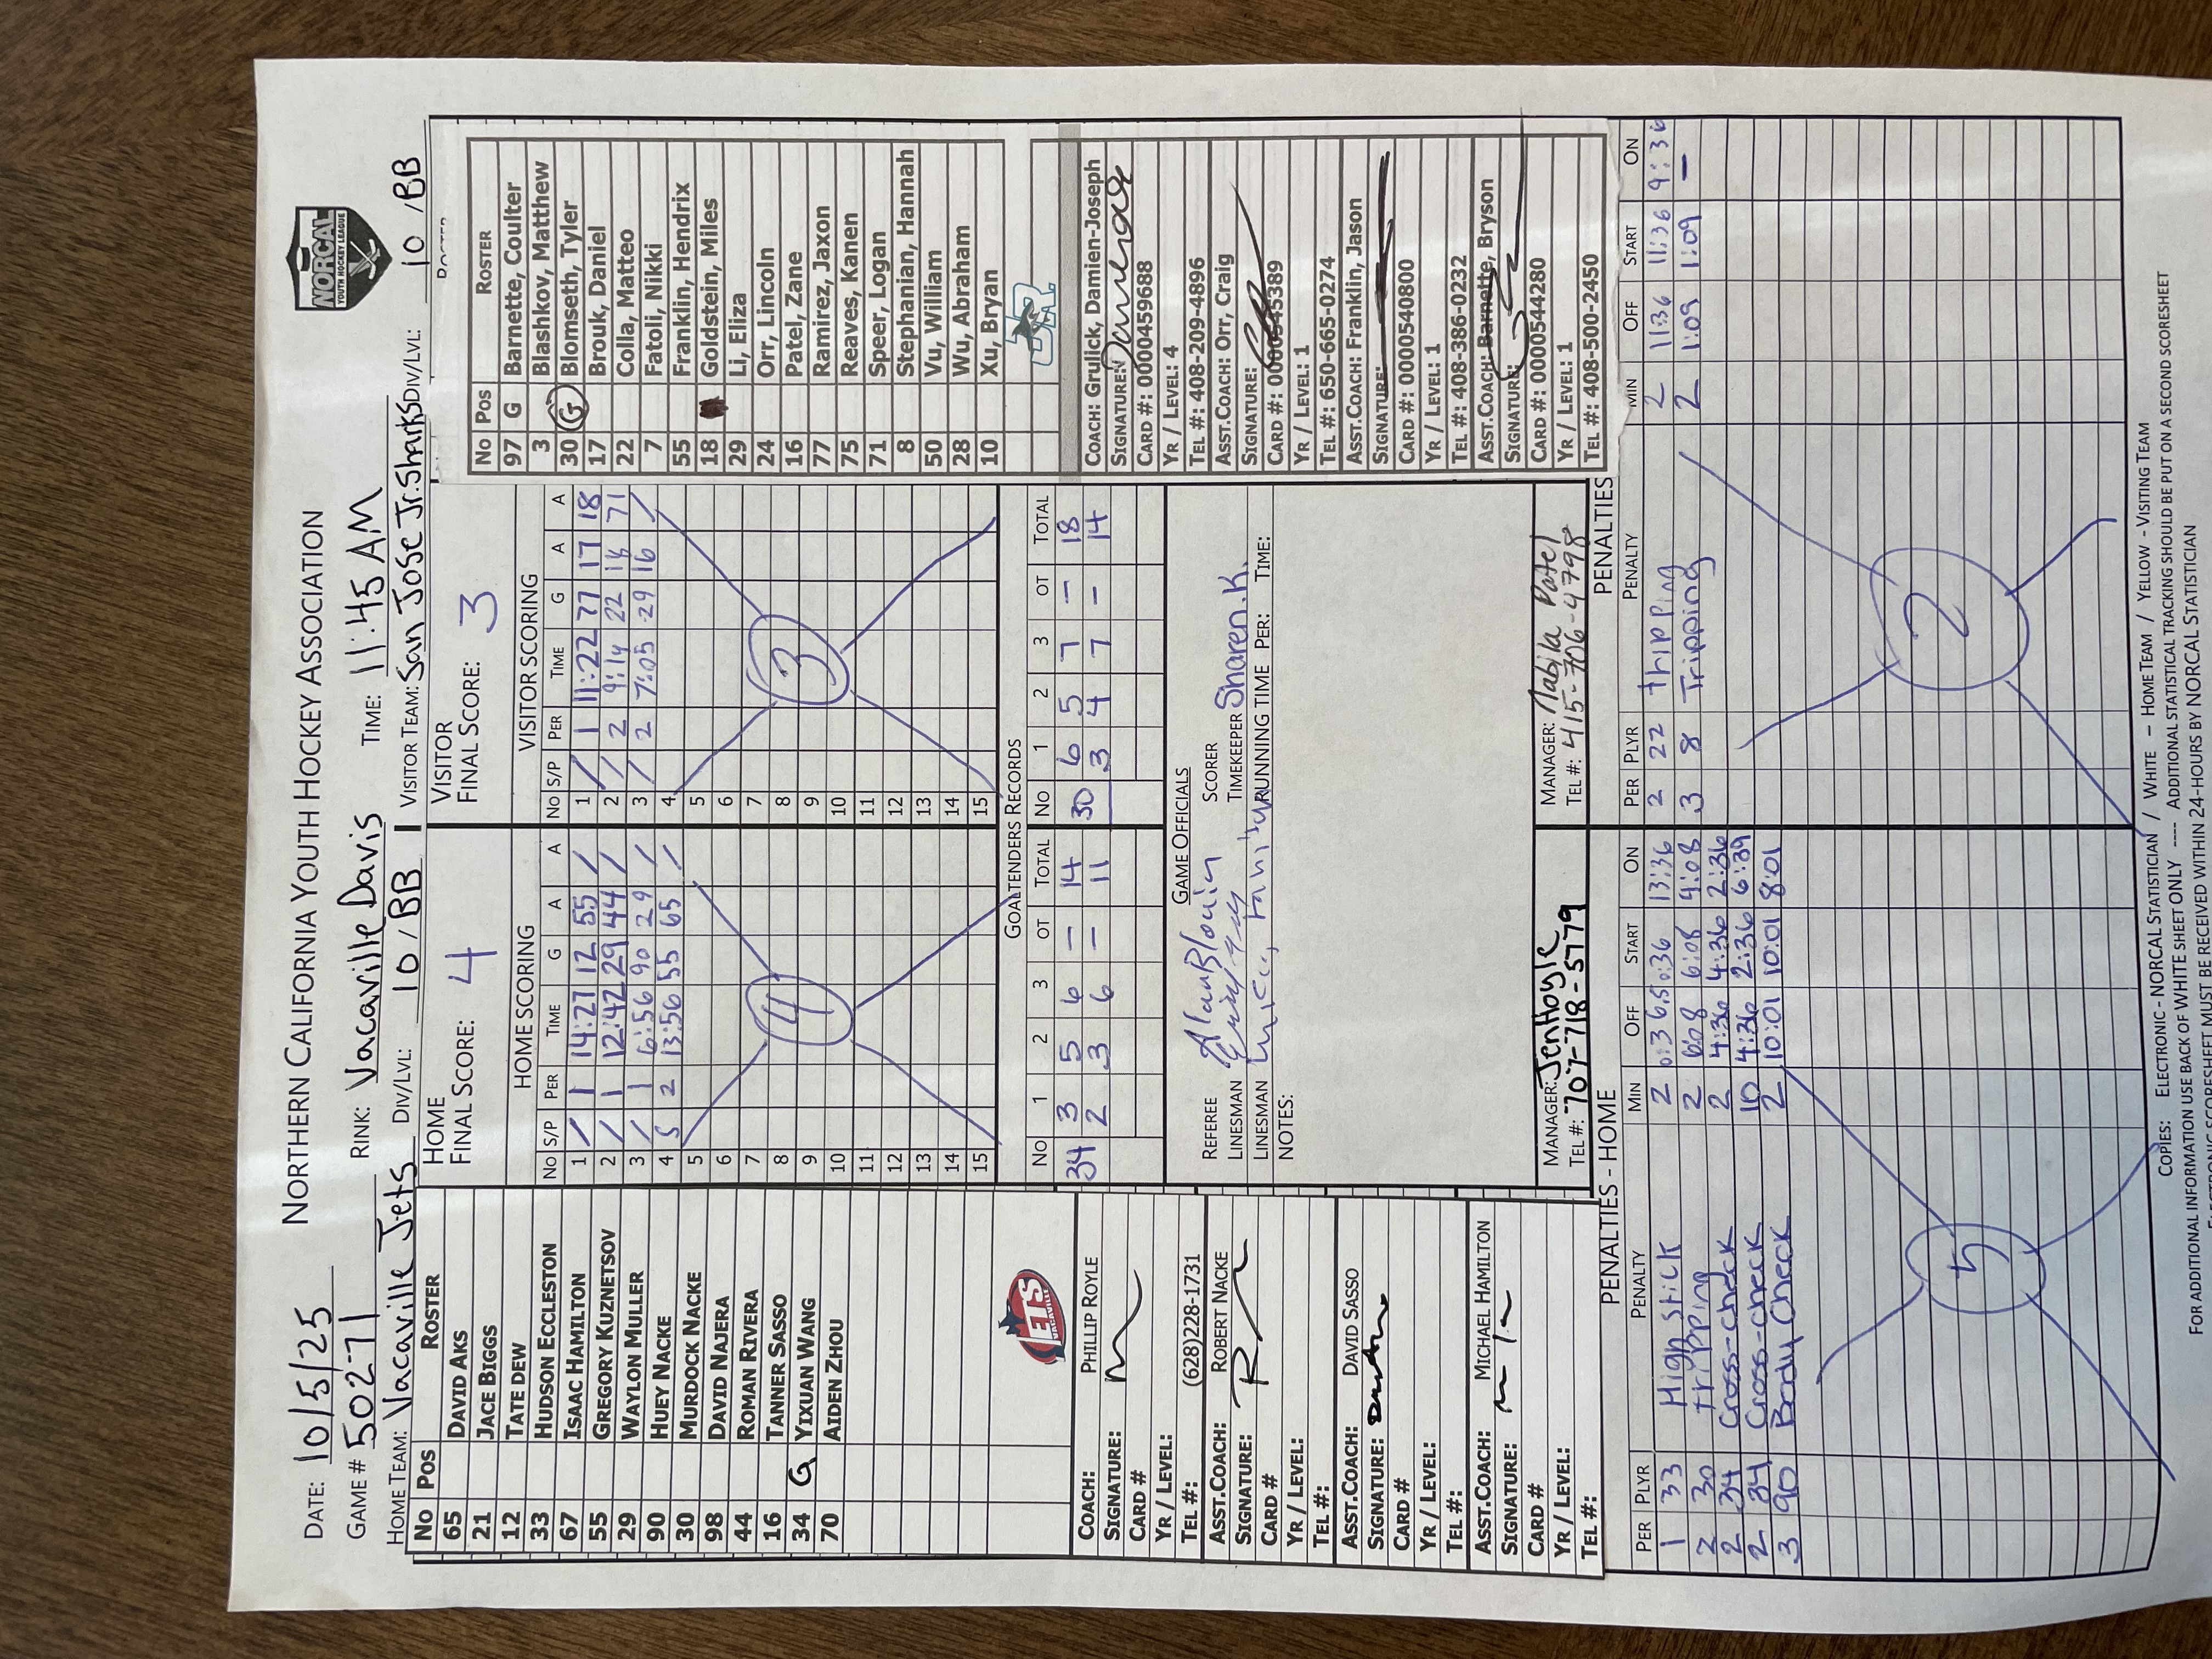 NORTHERN CALIFORNIA YOUTH HOCKEY ASSOCIATION
NORCAL
YOUTH HOCKEY LEAGUE
DATE: 10/5/25
GAME # 50271 RINK: Vacaville Davis TIME: 11:45 AM
HOME TEAM: Vacaville Jets DIV/LVL: 10 / BB VISITOR TEAM: San Jose Jr. Sharks DIV/LVL: 10 / BB
No Pos ROSTER
65 DAVID AKS
21 JACE BIGGS
12 TATE DEW
33 HUDSON ECCLESTON
67 ISAAC HAMILTON
55 GREGORY KUZNETSOV
29 WAYLON MULLER
90 HUEY NACKE
30 MURDOCK NACKE
98 DAVID NAJERA
44 ROMAN RIVERA
16 TANNER SASSO
34 G YIXUAN WANG
70 AIDEN ZHOU
JETS
COACH: PHILLIP ROYLE
SIGNATURE:
CARD #
YR / LEVEL:
TEL #: (628)228-1731
ASST.COACH: ROBERT NACKE
SIGNATURE:
CARD #
YR / LEVEL:
TEL #:
ASST.COACH: DAVID SASSO
SIGNATURE:
CARD #
YR / LEVEL:
TEL #:
ASST.COACH: MICHAEL HAMILTON
SIGNATURE:
CARD #
YR / LEVEL:
TEL #:
HOME
FINAL SCORE: 4
HOME SCORING
NO S/P PER TIME G A A
1 / 1 14:27 12 55 /
2 / 1 12:42 29 44 /
3 / 1 6:56 90 29 /
4 S 2 13:56 55 65 /
5
6
7
8
9
10
11
12
13
14
15
4
VISITOR
FINAL SCORE: 3
VISITOR SCORING
NO S/P PER TIME G A A
1 / 1 11:22 77 17 18
2 / 2 9:14 22 18 71
3 / 2 7:05 29 16 /
4
5
6
7
8
9
10
11
12
13
14
15
3
GOALTENDERS RECORDS
NO 1 2 3 OT TOTAL NO 1 2 3 OT TOTAL
34 3 5 6 – 14 30 6 5 7 – 18
2 3 6 – 11 3 4 7 – 14
GAME OFFICIALS
REFEREE Alan Blouin SCORER
LINESMAN TIMEKEEPER Sharen K.
LINESMAN RUNNING TIME PER: TIME:
NOTES:
MANAGER: Jen Hoyle
TEL #: 707-718-5179
MANAGER: Patel
TEL #: 415-706-4798
ROSTER
No Pos ROSTER
97 G Barnette, Coulter
3 Blashkov, Matthew
30 G Blomseth, Tyler
17 Brouk, Daniel
22 Colla, Matteo
7 Fatoli, Nikki
55 Franklin, Hendrix
18 Goldstein, Miles
29 Li, Eliza
24 Orr, Lincoln
16 Patel, Zane
77 Ramirez, Jaxon
75 Reaves, Kanen
71 Speer, Logan
8 Stephanian, Hannah
50 Vu, William
28 Wu, Abraham
10 Xu, Bryan
JR
COACH: Grulick, Damien-Joseph
SIGNATURE:
CARD #: 0000459688
YR / LEVEL: 4
TEL #: 408-209-4896
ASST.COACH: Orr, Craig
SIGNATURE:
CARD #: 0000545389
YR / LEVEL: 1
TEL #: 650-665-0274
ASST.COACH: Franklin, Jason
SIGNATURE:
CARD #: 0000540800
YR / LEVEL: 1
TEL #: 408-386-0232
ASST.COACH: Barnette, Bryson
SIGNATURE:
CARD #: 0000544280
YR / LEVEL: 1
TEL #: 408-500-2450
PENALTIES - HOME
PER PLYR PENALTY MIN OFF START ON
1 33 High Stick 2 0:36.5 0:36 13:36
2 30 tripping 2 6:08 6:08 4:08
2 34 Cross-check 2 4:36 4:36 2:36
2 34 Cross-check 10 4:36 2:36 6:39
3 90 Body Check 2 10:01 10:01 8:01
5
PENALTIES
PER PLYR PENALTY MIN OFF START ON
2 22 tripping 2 11:36 11:36 9:36
3 8 Tripping 2 1:09 1:09 –
2
COPIES: ELECTRONIC - NORCAL STATISTICIAN / WHITE – HOME TEAM / YELLOW - VISITING TEAM
FOR ADDITIONAL INFORMATION USE BACK OF WHITE SHEET ONLY ---- ADDITIONAL STATISTICAL TRACKING SHOULD BE PUT ON A SECOND SCORESHEET
ELECTRONIC SCORESHEET MUST BE RECEIVED WITHIN 24-HOURS BY NORCAL STATISTICIAN